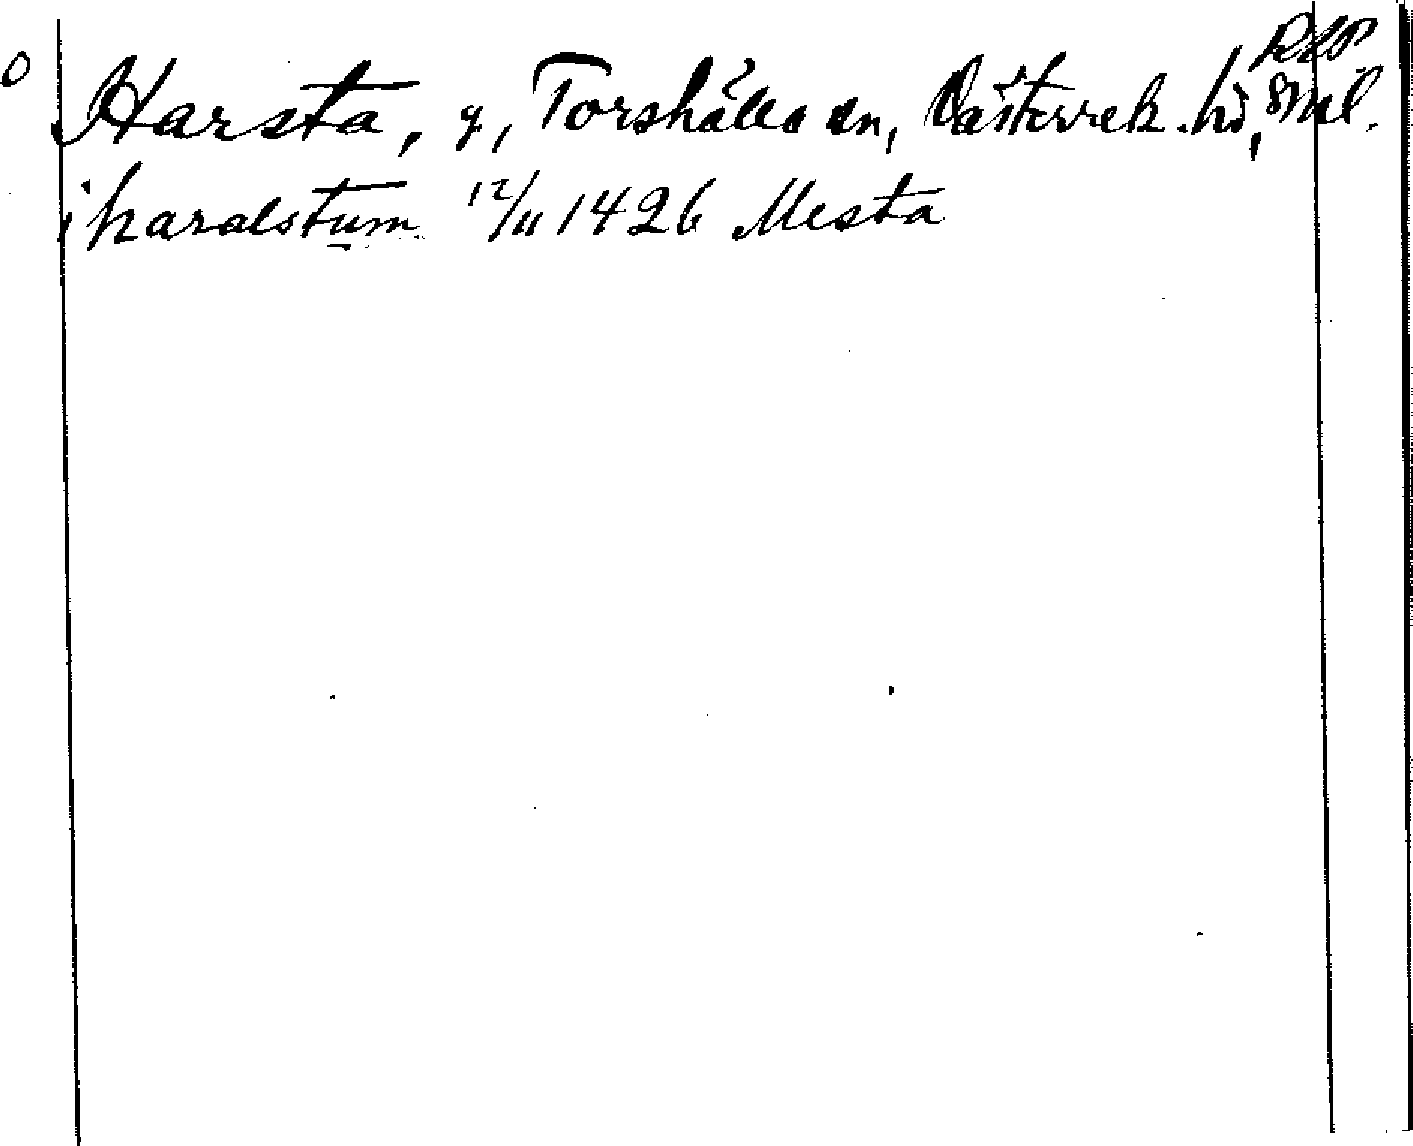 Harsta, g, Torshälla sn, Västerrek. hd, Sml.
i haralstum 12/11 1426 Mesta